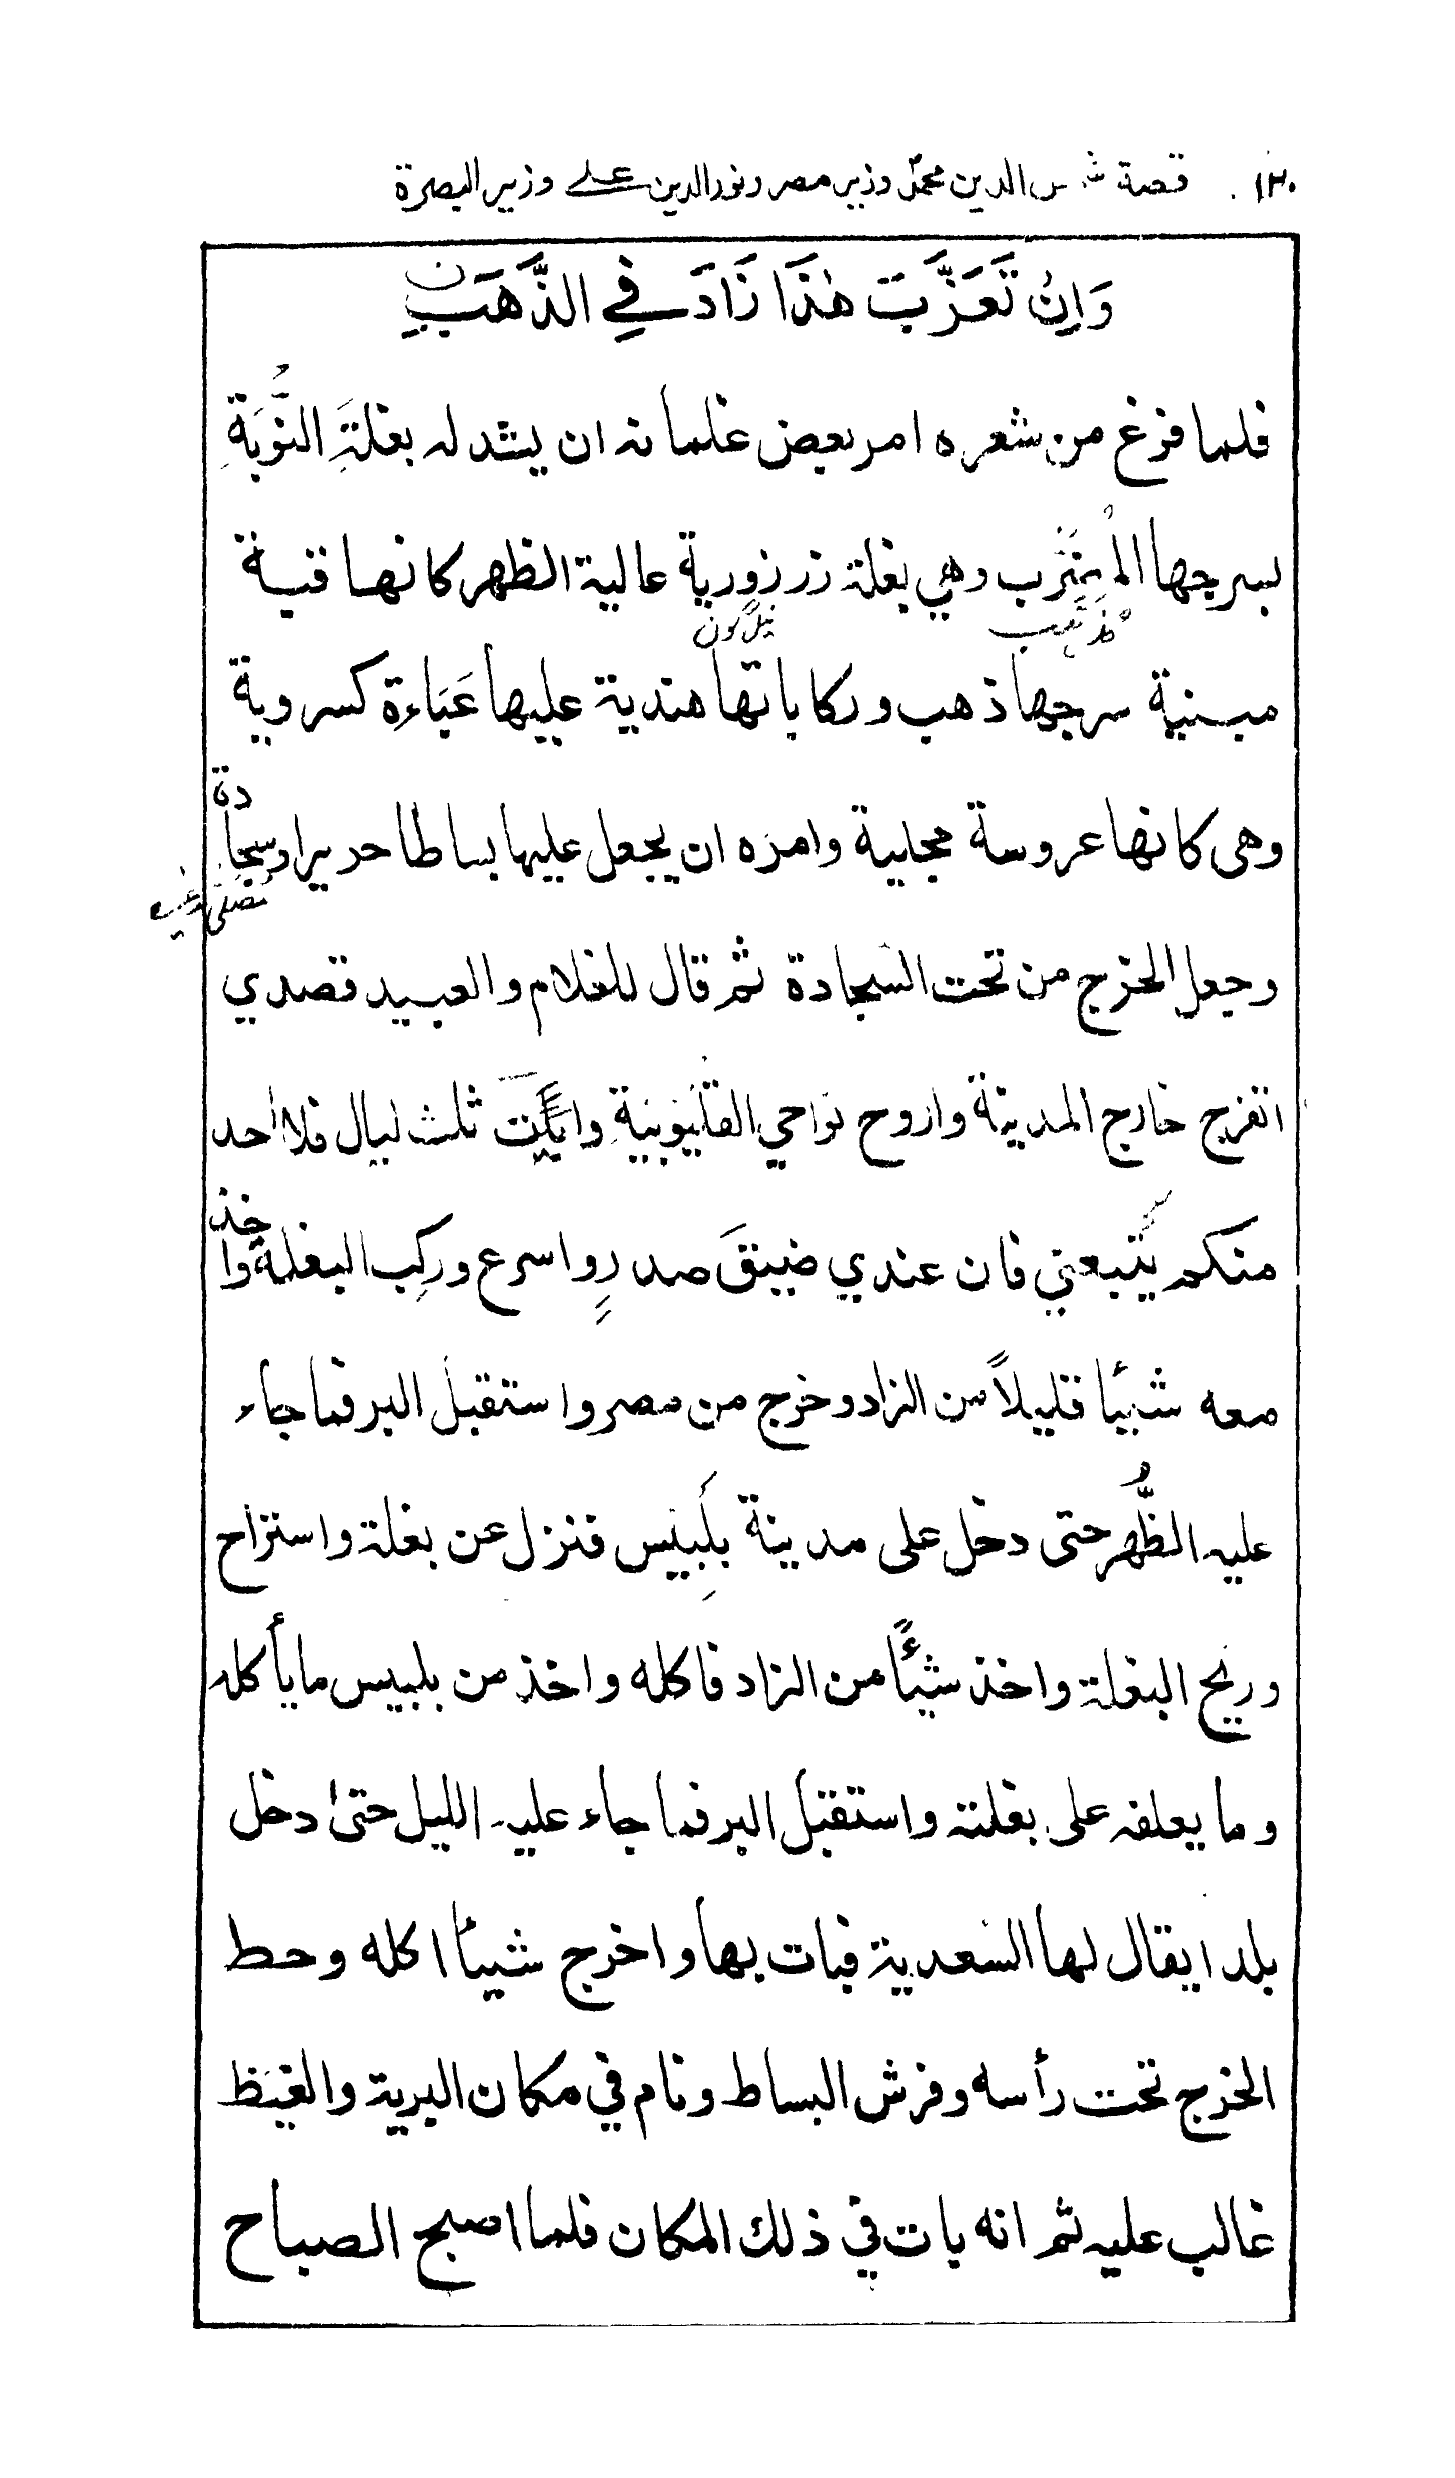 ١٢٠ قصة شمس الدين محمد وزير مصر ونور الدين علي وزير البصرة
وَاِنْ تَعَزَّبَ هٰذَا زَادَ فِي الذَّهَبِ
فلما فرغ من شعره امر بعض غلمانه ان يشد له بغلةَ النُّوبَةِ
بسرجها المضرب وهي بغلة زرزورية عالية الظهر كانها قبة
مذهب نيلگون
مبنية سرجها ذهب وركاباتها هندية عليها عَبَاءة كسروية
وهي كانها عروسة مجلية وامره ان يجعل عليها بساطا حريرا وسجادة
وجعل الخرج من تحت السجادة ثم قال للغلام والعبيد قصدي
اتفرج خارج المدينة واروح نواحي القليوبية وابيّت ثلث ليال فلا احد
منكم يتبعني فان عندي ضيقَ صدرٍ واسرع وركِب البغلة واخذ
معه شيئا قليلاً من الزاد وخرج من مصر واستقبل البر فما جاء
عليه الظُّهر حتى دخل على مدينة بِلْبَيس فنزل عن بغلة واستراح
وريح البغلة واخذ شيئاً من الزاد فاكله واخذ من بلبيس ما يأكله
وما يعلفه على بغلته واستقبل البر فما جاء عليه الليل حتىٰ دخل
بلدا يقال لها السعدية فبات بها واخرج شيئا اكله وحط
الخرج تحت رأسه وفرش البساط ونام في مكان البرية والغيظ
غالب عليه ثم انه بات في ذلك المكان فلما اصبح الصباح